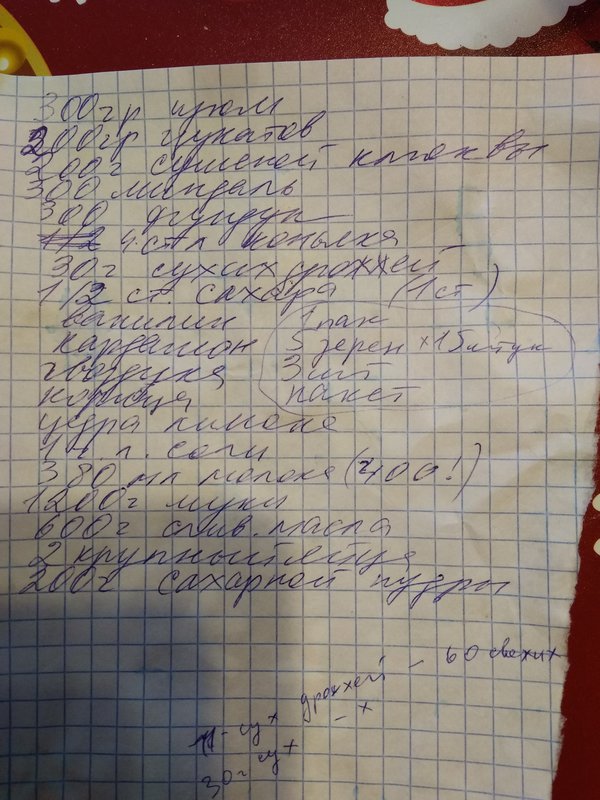 300гр изюм
200гр цукатов
200г сушеной клюквы
300 миндаль
300 фундук
4 ст л коньяка
30г сухих дрожжей
1/2 ст. сахара (1ст)
ванилин 1 пак
кардамон 5 зерен × 15 штук
гвоздика 3 шт
корица пакет
цедра лимона
1 ч. л. соли
380 мл молока (400!)
1200г муки
600г слив. масла
2 крупных яйца
200г сахарной пудры
11 - сух дрожжей - 60 свежих
30г сух - х